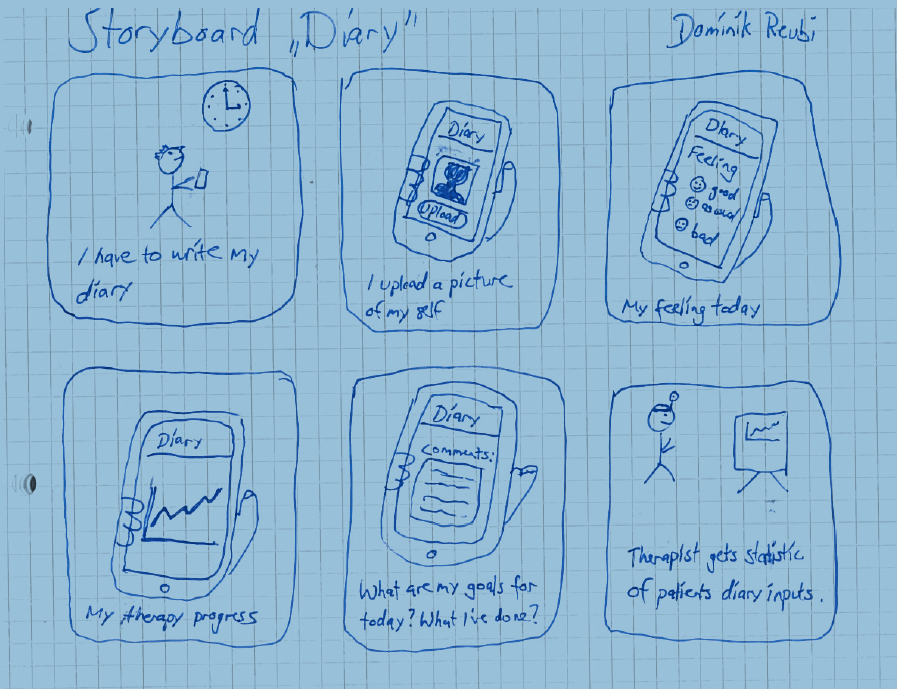 Storyboard „Diary"
Dominik Reubi
I have to write my
diary
Diary
Upload
I upload a picture
of my self
Diary
Feeling
good
bad
My feeling today
Diary
My therapy progress
Diary
Comments:
What are my goals for
today? What I've done?
Therapist gets statistic
of patients diary inputs.